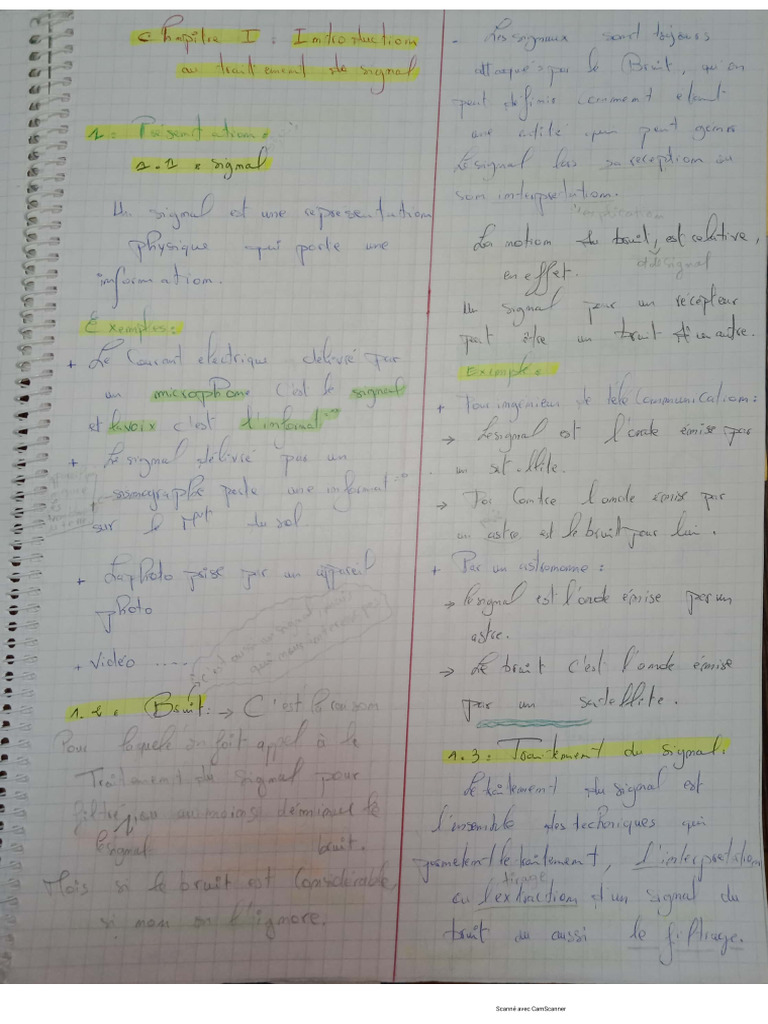 Chapitre I : Introduction
au traitement de signal
1. Présentation :
1.1 : signal
Un signal est une representation
physique qui porte une
information.
Exemples :
+ Le Courant electrique délivré par
un microphone c'est le signal
et la voix c'est l'informat°
+ Le signal délivré par un
sismographe porte une informat°
sur le Mvt du sol
+ La photo prise par un appareil
photo
+ Vidéo .....
c'est aussi un signal
1.2 : Bruit : → C'est la raison
Pour laquelle on fait appel à le
Traitement du signal pour
filtrer ou au moins diminuer le
le signal bruit.
Mais si le bruit est Considérable,
si non on l'ignore.
- Les signaux sont toujours
attaqués par le Bruit, qu'on
peut définir comment etant
une qui peut gener
le signal lors sa reception ou
son interpretation.
l'amplication
La notion du bruit, est relative,
du signal
en effet.
Un signal pour un récepteur
peut être un bruit d'un autre.
Exemple :
+ Pour ingénieur de télé Communication :
→ Le signal est l'onde émise par
un satellite.
→ Par Contre l'onde émise par
un astre est le bruit pour lui.
+ Par un astronome :
→ le signal est l'onde émise par un
astre.
→ Le bruit c'est l'onde émise
par un satellite.
1.3 : Traitement du signal :
Le traitement du signal est
l'ensemble des techniques qui
permetent le traitement, l'interpretation
ou l'extraction d'un signal du
bruit ou aussi le filtrage.
Scanné avec CamScanner